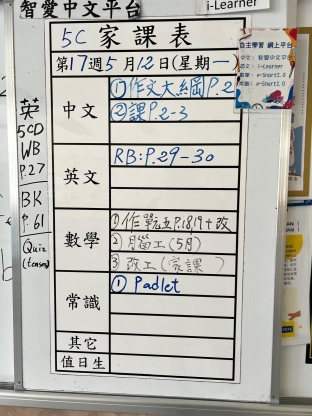 智愛中文平台
i-Learner
5C 家課表
第17週5月12日(星期一)
中文
①作文大綱P.2
②課P.2-3
英文
RB:P.29-30
數學
①作單元五P.18,19+改
②月腦工(5月)
③改工(家課)
常識
① Padlet
其它
值日生
英
5CD
WB
P.27
BK
P.61
Quiz
(tenses)
自主學習 網上平台
中文:智愛中文平台
英文:i-Learner
常識:e-Smart2.0